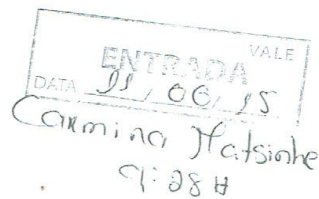 VALE
ENTRADA
DATA 11, 06, 15
Carmina Matsinhe
9:28 H